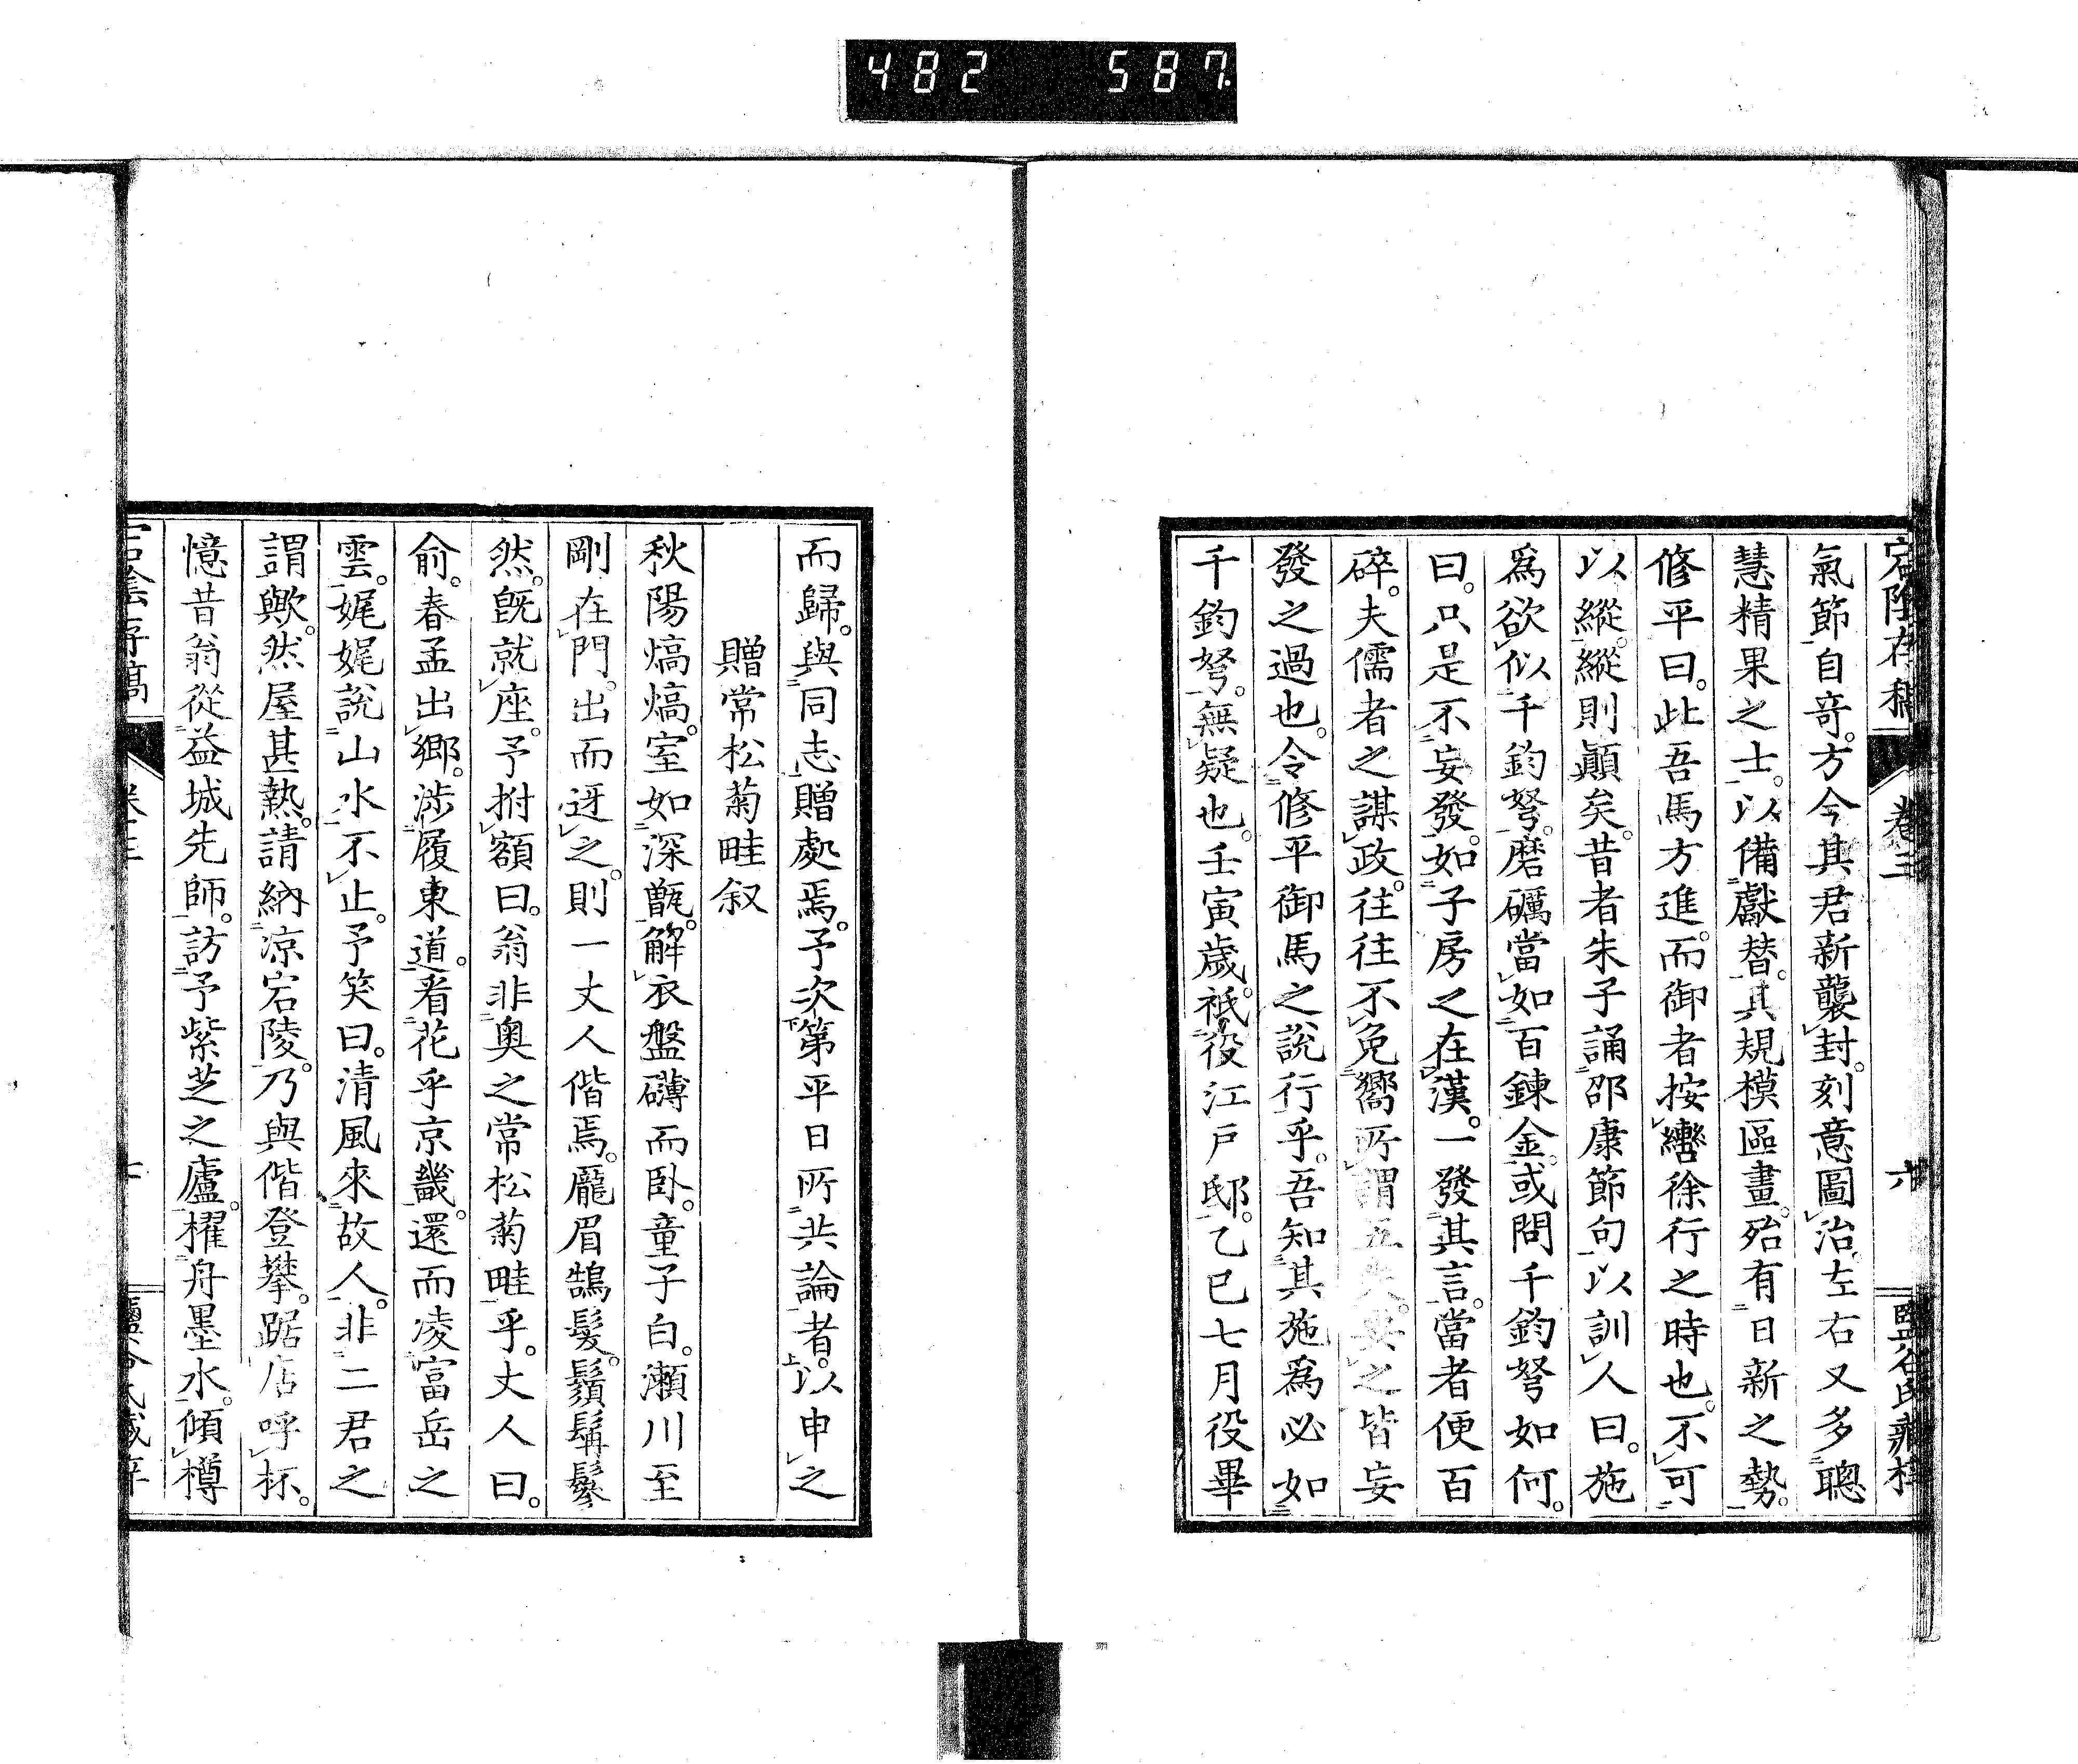 482 587
宕陰存稿 卷三 六 鹽谷氏藏梓
氣節自奇。方今其君新襲封。刻意圖治。左右又多聰
慧精果之士。以備獻替。其規模區畫。殆有日新之勢。
修平曰。此吾馬方進。而御者按轡徐行之時也。不可
以縱。縱則顚矣。昔者朱子誦邵康節句。以訓人曰。施
爲欲似千鈞弩。磨礪當如百鍊金。或問千鈞弩如何。
曰。只是不妄發。如子房之在漢。一發其言。當者便百
碎。夫儒者之謀政。往往不免嚮所謂五失。要之皆妄
發之過也。令修平御馬之說行乎。吾知其施爲必如
千鈞弩。無疑也。壬寅歲。祗役江戶邸。乙巳七月役畢
而歸。與同志贈處焉。予次第平日所共論者。以申之
贈常松菊畦叙
秋陽熇熇。室如深甑。解衣盤礴而臥。童子白。瀨川至
剛在門。出而迓之。則一丈人偕焉。龐眉鵠髮。鬚髯鬖
然。旣就座。予拊額曰。翁非奧之常松菊畦乎。丈人曰。
俞。春孟出鄉。涉履東道。看花乎京畿。還而凌富岳之
雲。娓娓說山水不止。予笑曰。清風來故人。非二君之
謂歟。然屋甚熱。請納凉宕陵。乃與偕登攀。踞店呼杯。
憶昔翁從益城先師。訪予紫芝之廬。櫂舟墨水。傾樽
宕陰存稿 卷三 七 鹽谷氏藏梓